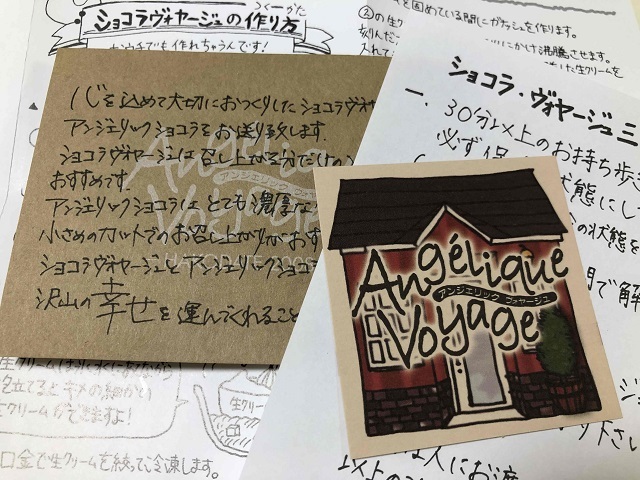 つくりかた
ショコラヴォヤージュの作り方
お家でも作れちゃうんです!
を固めている間にガナッシュを作ります。
②の生ク
刻んだ
にかけ沸騰させます。
入れて
した生クリームを
心を込めて大切におつくりしたショコラヴォヤ
アンジェリックショコラをお送り致します。
ショコラヴォヤージュは召し上がる分だけ
おすすめです。
アンジェリックショコラは とても濃厚な
小さめのカットでのお召し上がりがおす
ショコラヴォヤージュとアンジェリックショコラ
沢山の幸せを運んでくれること
Angélique
アンジェリック ヴォヤージュ
Voyage
HAKODATE 2005
ショコラ・ヴォヤージュ三
一、30分以上のお持ち歩き
必ず保
状態にし
の状態を
で解
Angélique
アンジェリック ヴォヤージュ
Voyage
下さい
人にお
以上の
生クリーム
泡立てると キメの細かい
生クリームができますよ!
生クリーム
口金で生クリームを絞って冷凍します。